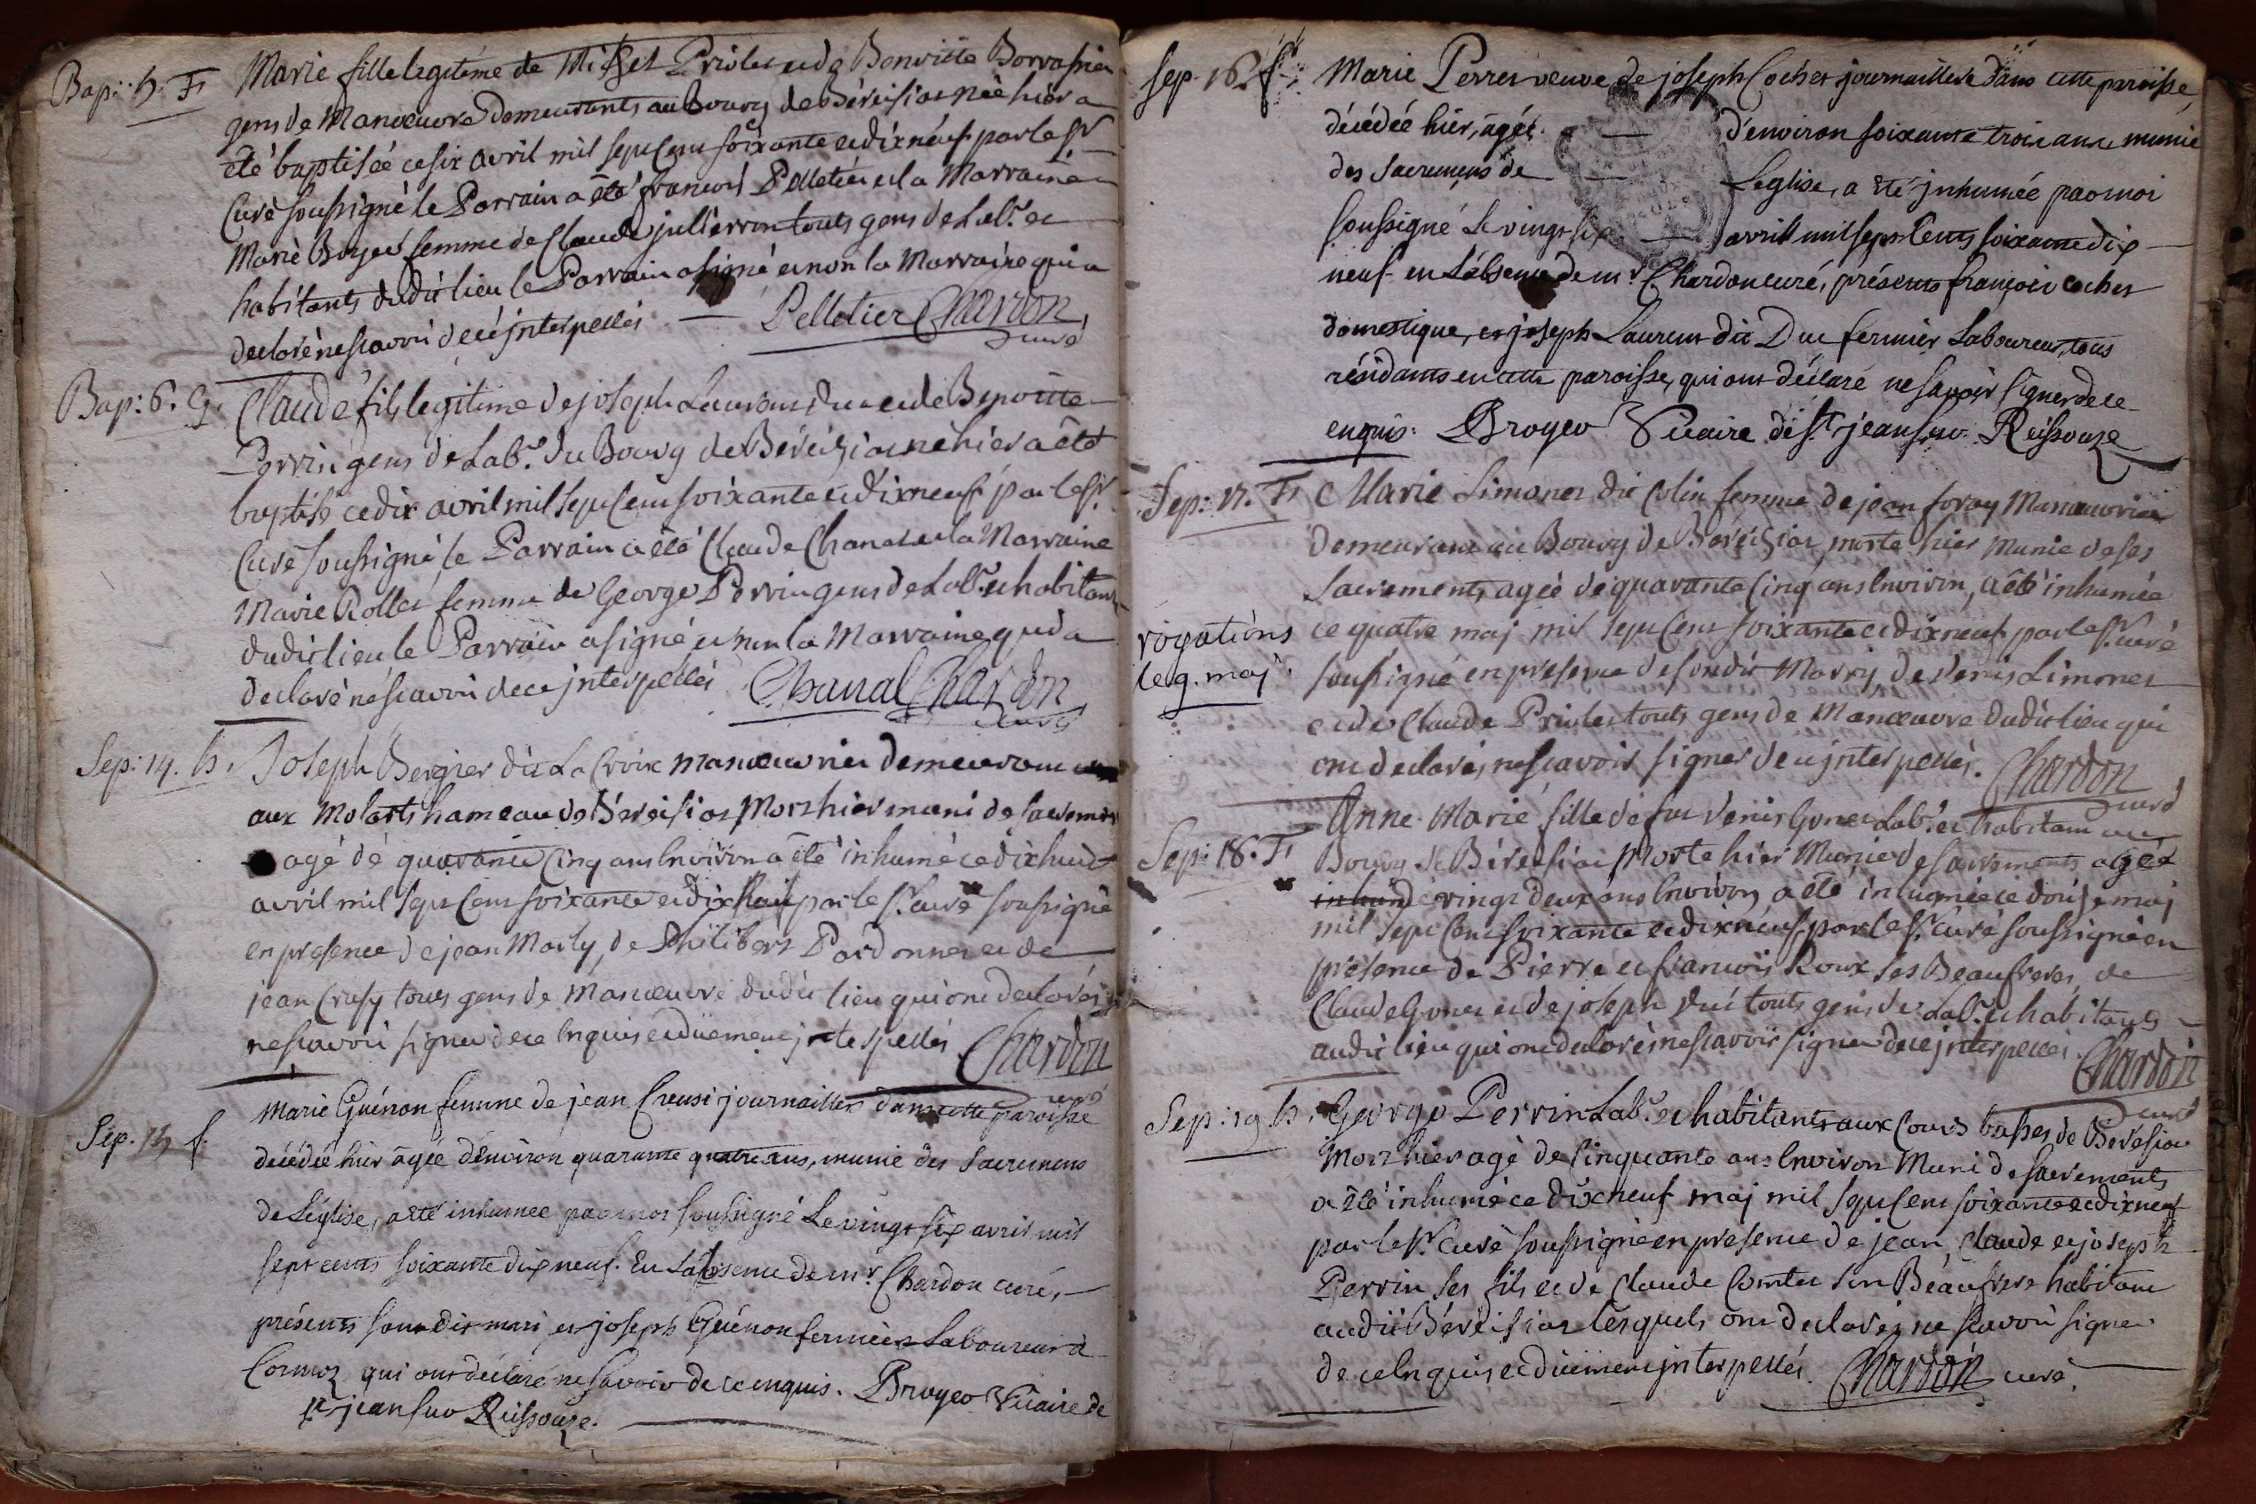 Bap: 5. F. Marie fille legitime de Michel Priolet et de Benoitte Borrassier
gens de Manoeuvre demeurants au Bourg de Béréisiat née hier a
été baptisée ce six avril mil sept cent soixante et dix neuf par le Sr
Curé soussigné le Parrain a été francois Pelletier et la Marraine
Marie Boyer femme de Claude jullierron touts gens de Labr. et
habitants dudit lieu le Parrain a signé et non la Marraine qui a
declaré ne scavoir de ce jnterpellés Pelletier Chardon
curé
Bap: 6. G. Claude fils legitime de joseph Laurent duc et de Benoitte
Perrin gens de Labr. du Bourg de Béréiziat né hier a été
baptisé ce dix avril mil sept cent soixante et dix neuf par le Sr
Curé soussigné le Parrain a été Claude Chanal et la Marraine
Marie Rollet femme de George Perrin gens de Labr. et habitans
dudit lieu le Parrain a signé et non la Marraine qui a
declaré ne scavoir de ce jnterpellés Chanal Chardon
curé
Sep: 14. h. Joseph Bergier dit La Croix manoeuvrier demeurant
aux Molarts hameau de Béréisiat Mort hier muni de sacrements
agé de quarante Cinq ans Environ a été inhumé ce dix huit
avril mil sept Cent soixante et dix neuf par le Sr curé soussigné
en presence de jean Marly, de Philibert Pardonnet et de
jean Crusy tous gens de Manoeuvre dudit lieu qui ont declarés
ne scavoir signer de ce Enquis et düement jnterpellés Chardon
curé
Sep. 15 f. Marie Guénon femme de jean Creusi journaillier dans cette paroisse
décédée hier âgée d'environ quarante quatre ans, munie des Sacremens
de L'église, a été inhumée par moi soussigné Le vingt six avril mil
sept cents soixante dix neuf. En L'absence de mr. Chardon curé,
présents son dit mari et joseph Guénon fermier Laboureur à
Cormoz qui ont déclaré ne savoir de ce enquis. Broyer Vicaire de
St jean sur Reissouze.
Sep. 16. f. Marie Perret veuve de joseph Cochet journaillere dans cette paroisse,
décédée hier, âgée d'environ soixante trois ans munie
des Sacremens de L'eglise, a été jnhumée par moi
soussigné Le vingt six avril mil sept Cents soixante dix
neuf en L'absence de mr. Chardon curé, présents françois cochet
domestique, et joseph Laurent dit Duc fermier Laboureur, tous
résidants en cette paroisse, qui ont déclaré ne savoir signer de ce
enquis. Broyer Vicaire de St. jean sur Reissouze
Sep: 17. F. Marie Limonet dit Colin femme de jean foray Manoeuvrier
demeurant au Bourg de Béréiziat morte hier munie de ses
Sacrements agée de quarante Cinq ans Environ, a été inhumée
ce quatre maj mil sept Cent soixante et dix neuf par le Sr. curé
rogations
le 9. maj
soussigné en presence de son dit Marry, de denis Limonet
et de Claude Priolet touts gens de Manoeuvre dudit lieu qui
ont declarés ne scavoir signer de ce jnterpellés. Chardon
curé
Sep: 18. F. Anne-Marie fille de feu denis Gonet Labr. et habitant au
Bourg de Béréisiat Morte hier Munie de sacrements agée
de vingt deux ans Environ a été inhumée ce douze maj
mil sept Cent soixante et dix neuf par le Sr. curé soussigné en
presence de Pierre et francois Roux ses Beaufreres, de
Claude Gonet et de joseph duc touts gens de Labr. et habitants
audit lieu qui ont declarés ne scavoir signer de ce jnterpellés. Chardon
curé
Sep: 19 h. George Perrin Labr. et habitants aux Cours basses de Béréisiat
Mort hier agé de Cinquante ans Environ Muni de sacrements
a été inhumé ce dix neuf maj mil sept Cent soixante et dix neuf
par le Sr. Curé soussigné en presence de jean, Claude et joseph
Perrin ses fils et de Claude Comtet son Beaufrere habitant
audit Béréisiat lesquels ont declarés ne scavoir signer
de ce Enquis et düement jnterpellés. Chardon curé.